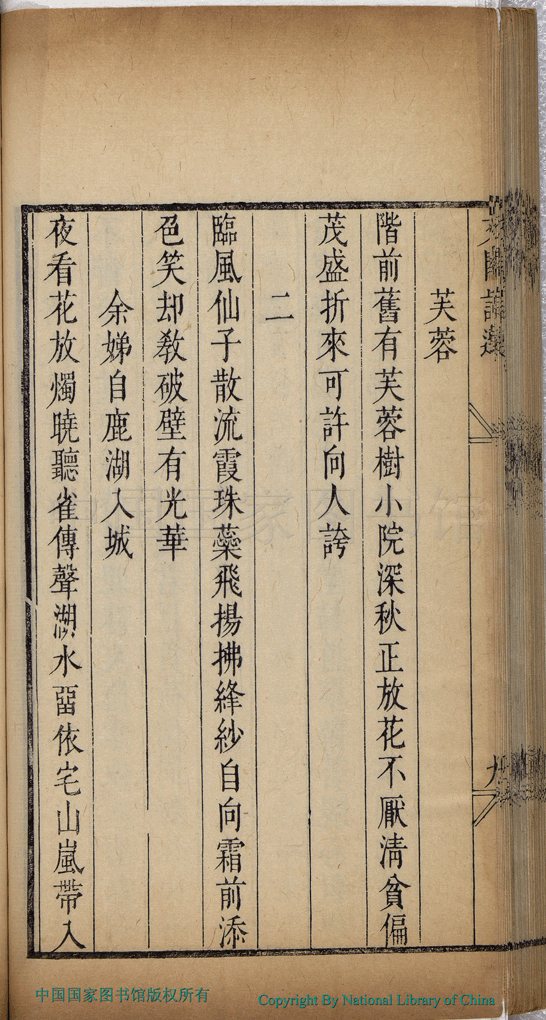 芙蓉
階前舊有芙蓉樹小院深秋正放花不厭清貧偏
茂盛折來可許向人誇
二
臨風仙子散流霞珠蘂飛揚拂絳紗自向霜前添
色笑却敎破壁有光華
余娣自鹿湖入城
夜看花放燭曉聽雀傳聲湖水畱依宅山嵐帶入
中国国家图书馆版权所有
Copyright By National Library of China